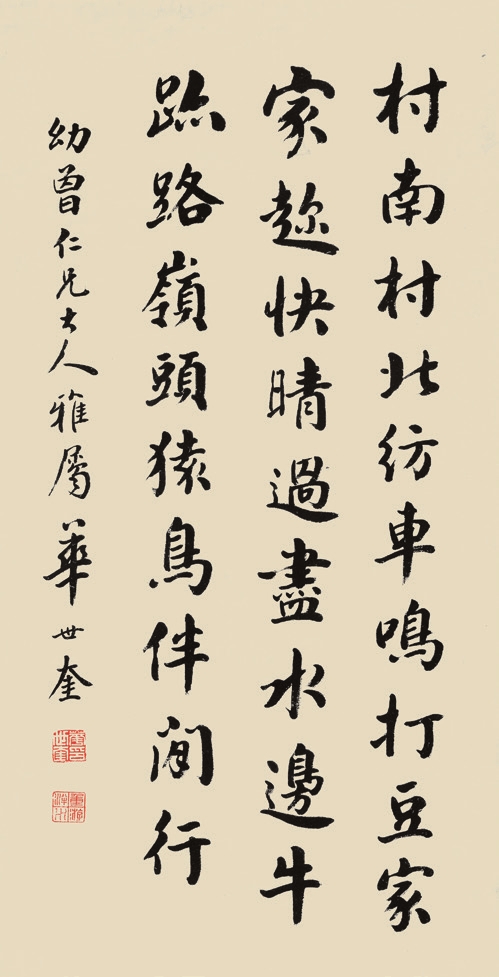 村南村北紡車鳴打豆家
家趂快晴過盡水邊牛
跡路嶺頭猿鳥伴閒行
幼曾仁兄大人雅屬華世奎